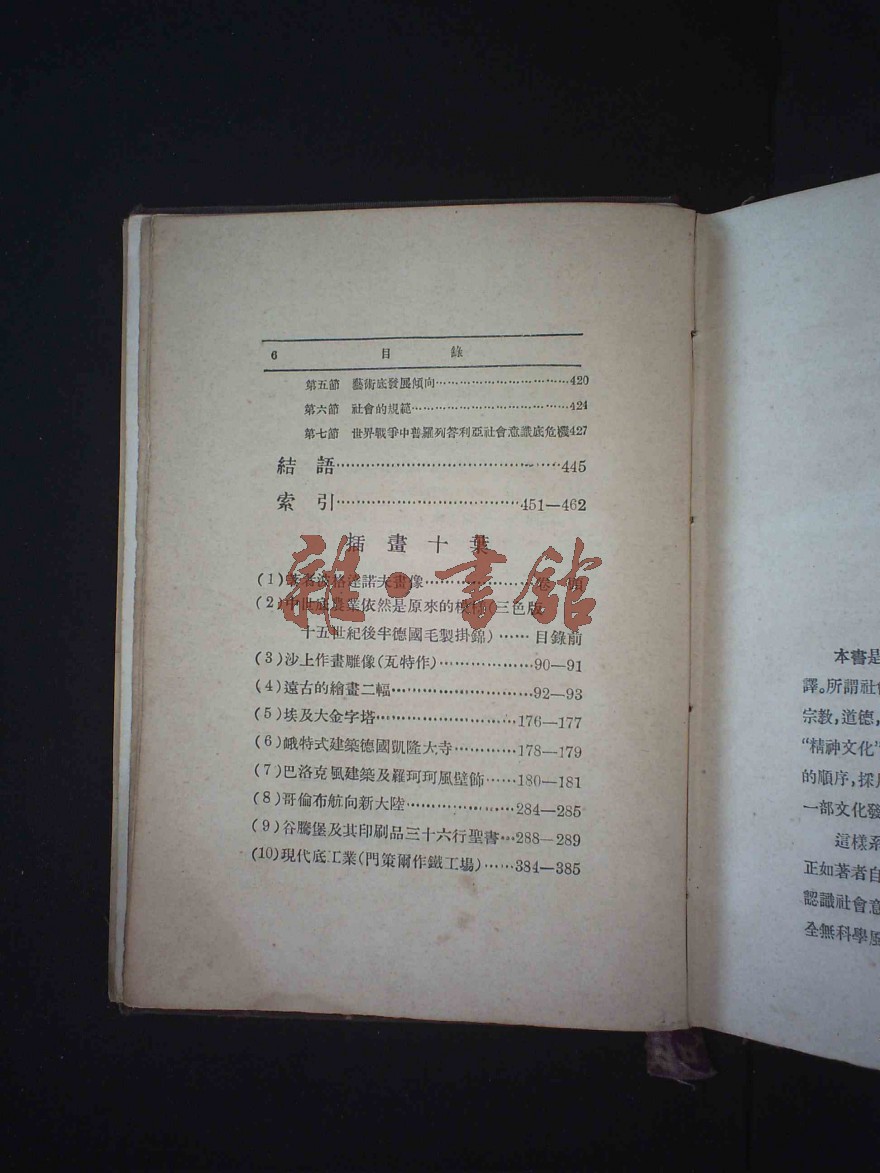 6 目錄
第五節 藝術底發展傾向……………………………420
第六節 社會的規範…………………………………424
第七節 世界戰爭中普羅列答利亞社會意識底危機427
結語……………………………………445
索引………………………………451—462
插畫十葉
(1)著者波格達諾夫畫像…………………卷頭
(2)中世底農業依然是原來的模樣(三色版
十五世紀後半德國毛製掛錦)……目錄前
(3)沙上作畫雕像(瓦特作)………………90—91
(4)遠古的繪畫二幅………………………92—93
(5)埃及大金字塔………………………176—177
(6)峨特式建築德國凱隆大寺…………178—179
(7)巴洛克風建築及羅珂珂風壁飾……180—181
(8)哥倫布航向新大陸…………………284—285
(9)谷騰堡及其印刷品三十六行聖書…288—289
(10)現代底工業(門策爾作鐵工場)……384—385
雜·書館
本書是
譯。所謂社會
宗教,道德,
“精神文化”
的順序,採用
一部文化發
這樣系
正如著者自
認識社會意
全無科學風